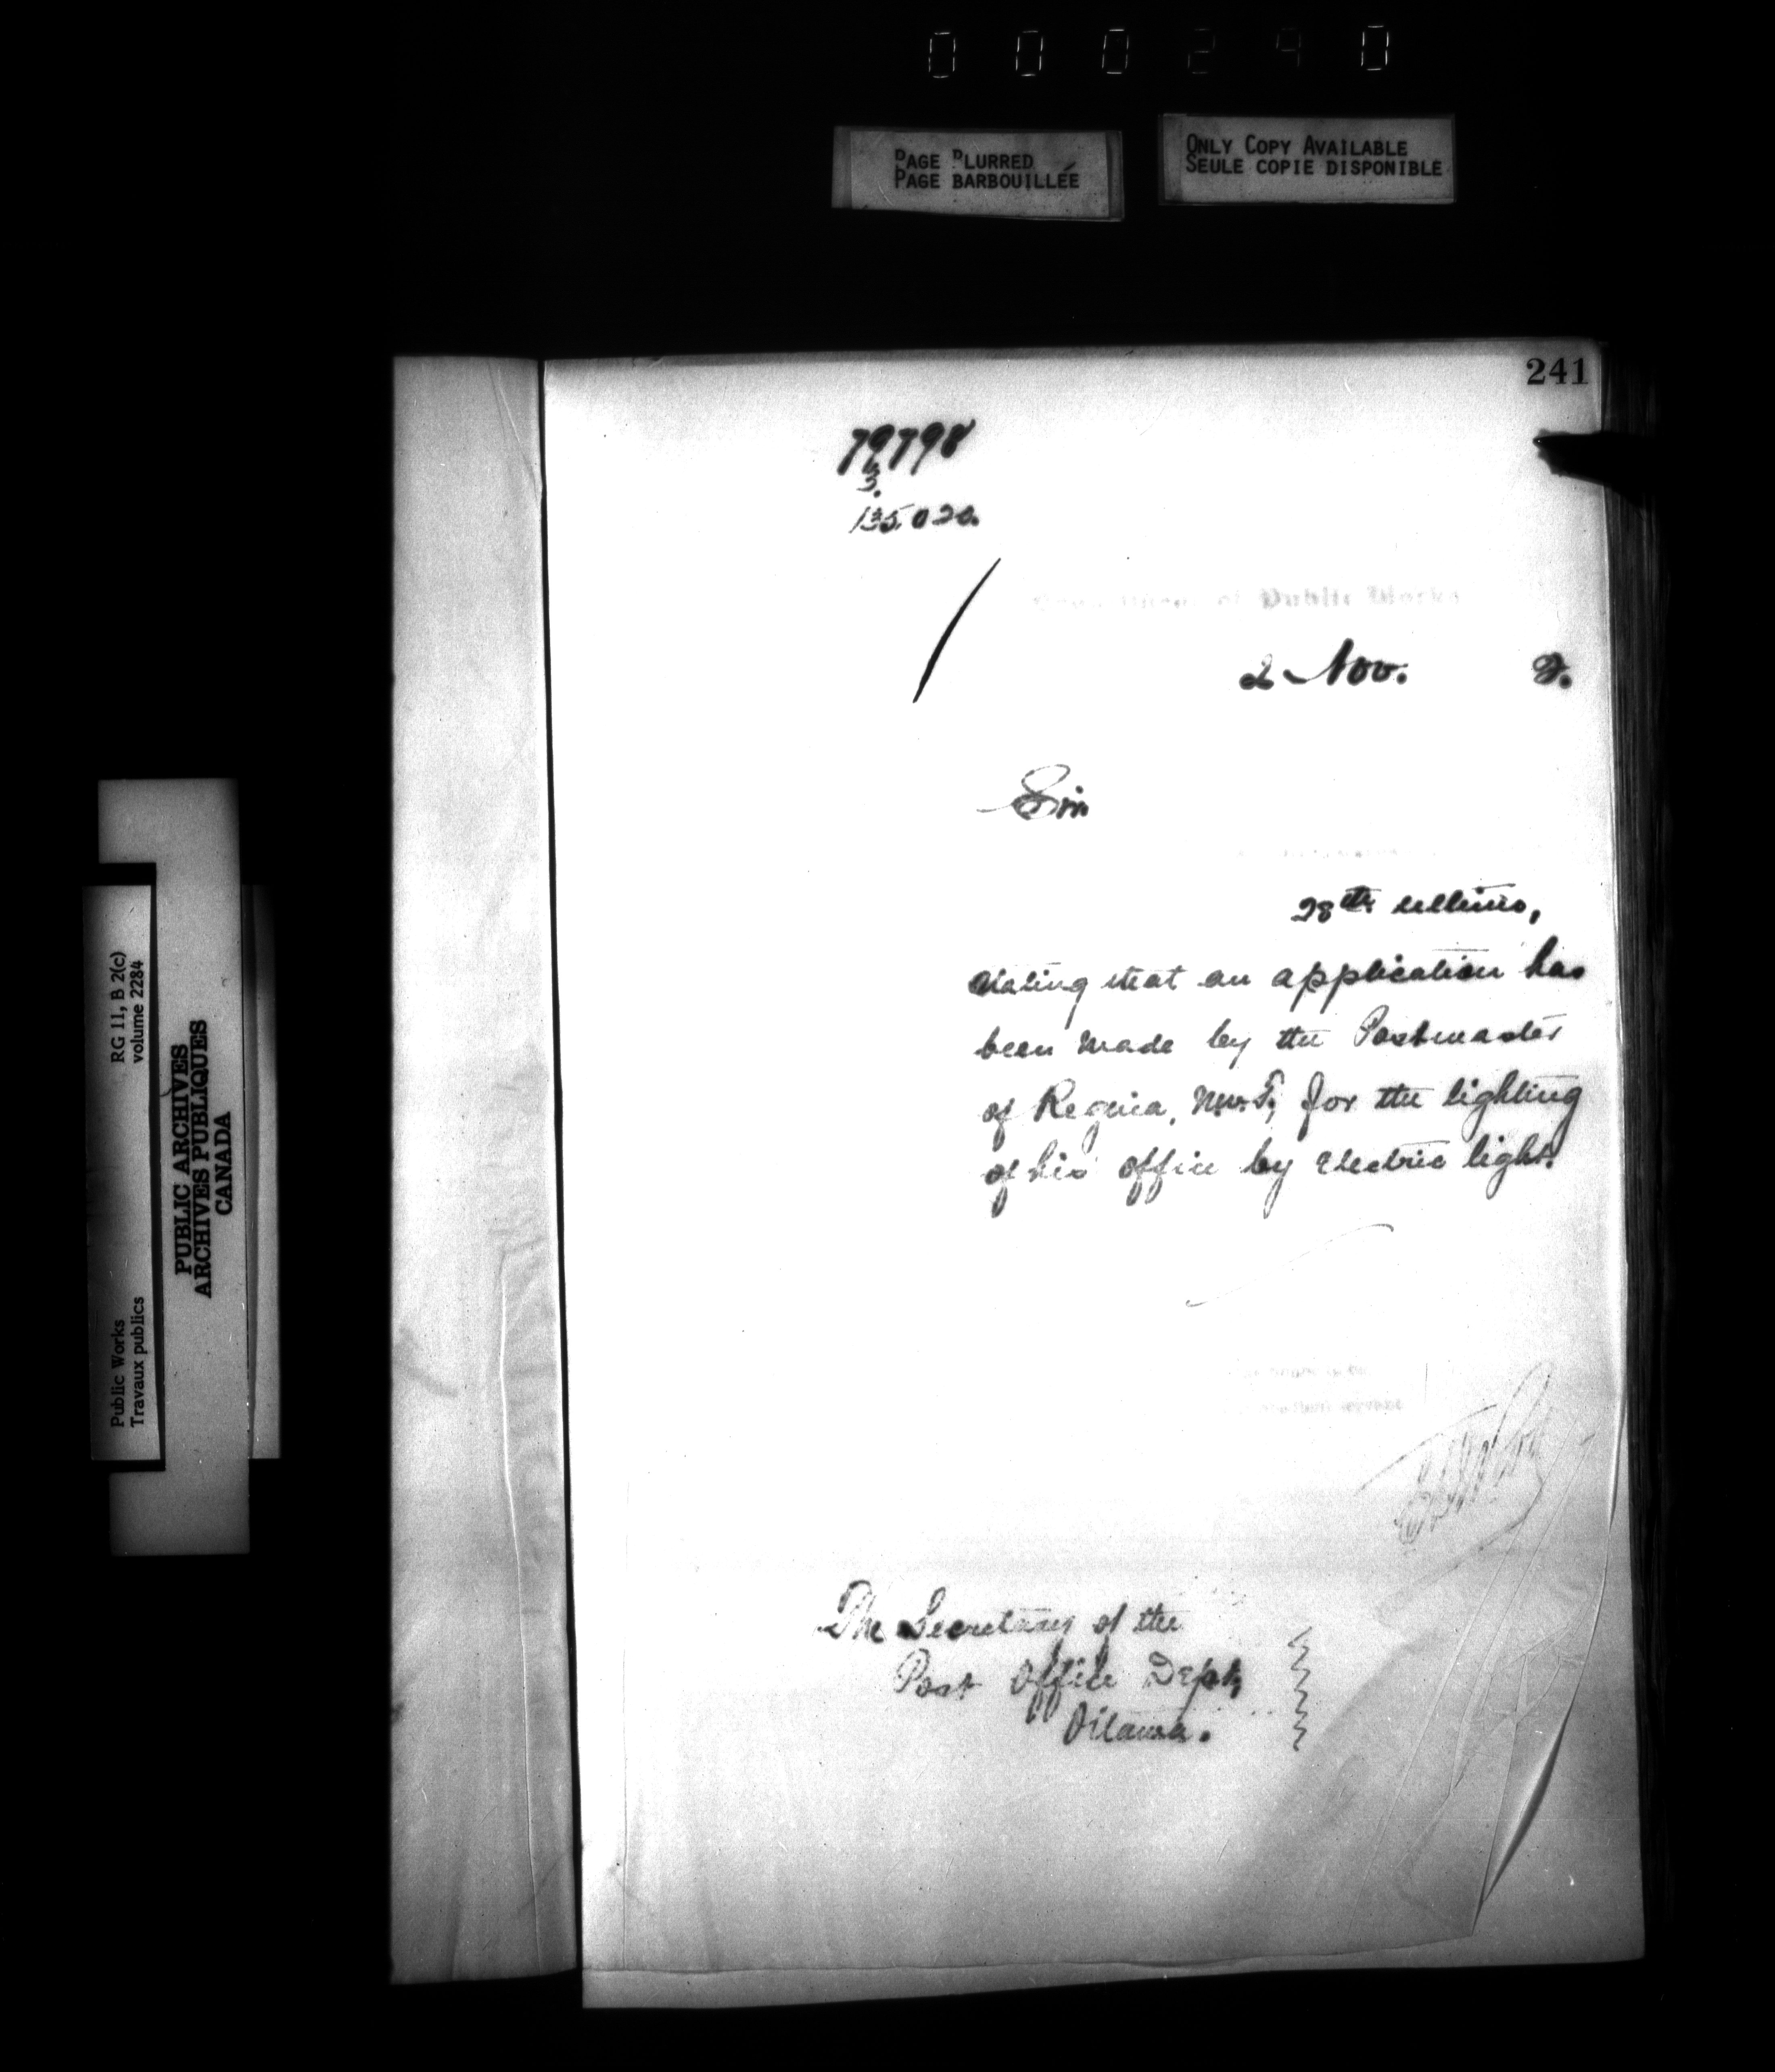 000290
PAGE BLURRED
PAGE BARBOUILLÉE
ONLY COPY AVAILABLE
SEULE COPIE DISPONIBLE
241
79798
3.
135020.
Department of Public Works
2 Nov. 2.
Sir
28th ultimo,
stating that an application has
been made by the Postmaster
of Regina, N.W.T, for the lighting
of his office by electric light.
servant
The Secretary of the
Post Office Dept,
Ottawa.
Public Works
Travaux publics
RG 11, B 2(c)
volume 2284
PUBLIC ARCHIVES
ARCHIVES PUBLIQUES
CANADA